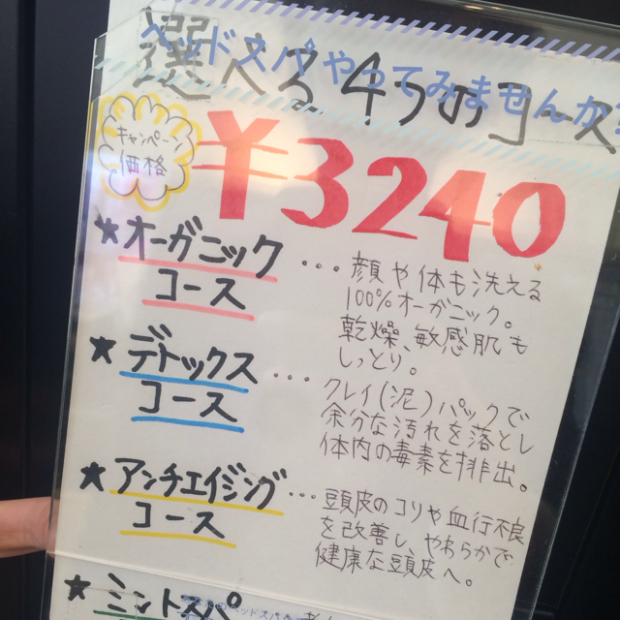 ヘッドスパやってみませんか?
選べる4つのコース
キャンペーン
価格
¥3240
★オーガニック
コース
...顔や体も洗える
100%オーガニック。
乾燥、敏感肌も
しっとり。
★デトックス
コース
...クレイ(泥)パックで
余分な汚れを落とし
体内の毒素を排出。
★アンチエイジング
コース
...頭皮のコリや血行不良
を改善し、やわらかで
健康な頭皮へ。
★ミントスパ